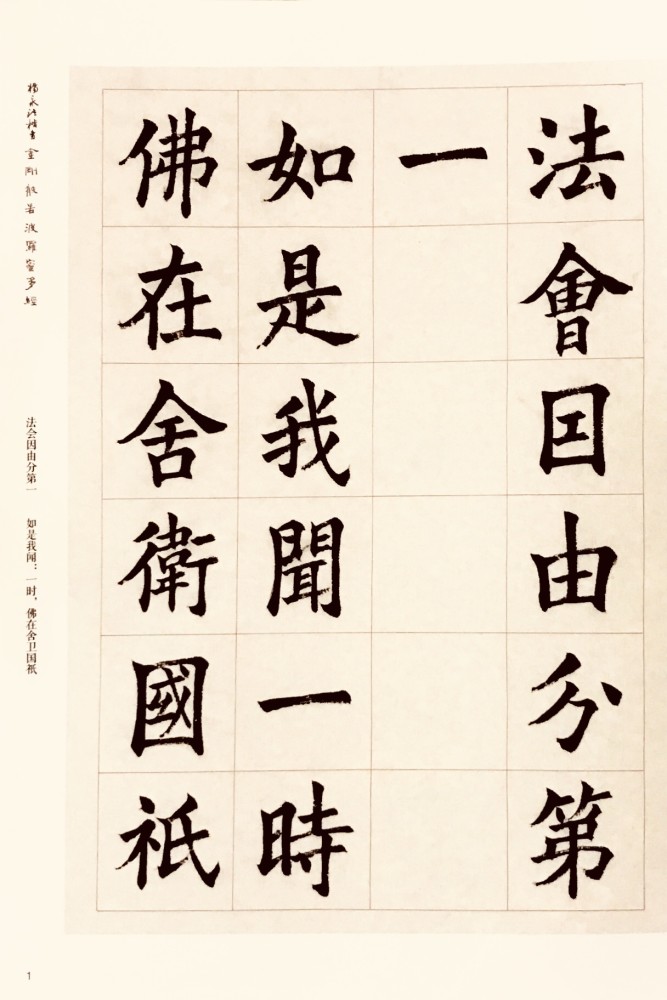 法會因由分第
一
如是我聞一時
佛在舍衛國祇
楊永沛楷書金剛般若波羅蜜多經
法会因由分第一 如是我闻：一时，佛在舍卫国祇
1